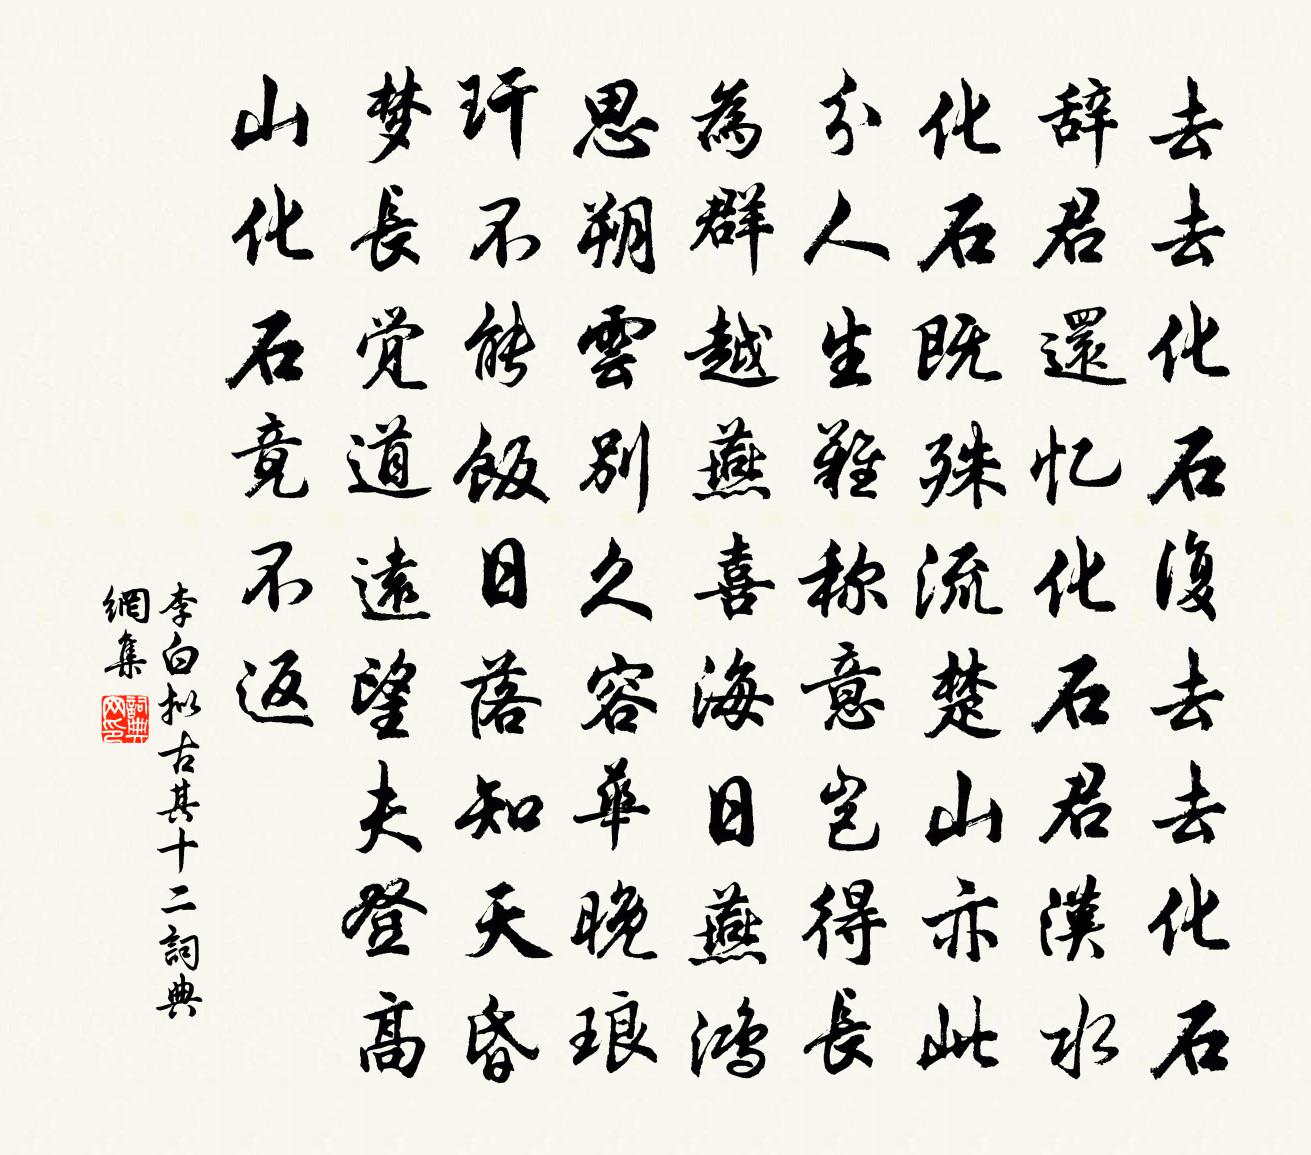 去去化石復去去化石
辞君還忆化石君漢水
化石既殊流楚山亦此
分人生難称意岂得長
為群越燕喜海日燕鴻
思朔雲別久容華晚琅
玕不能飯日落知天昏
梦長觉道遠望夫登高
山化石竟不返
李白拟古其十二詞典
網集
詞典网印